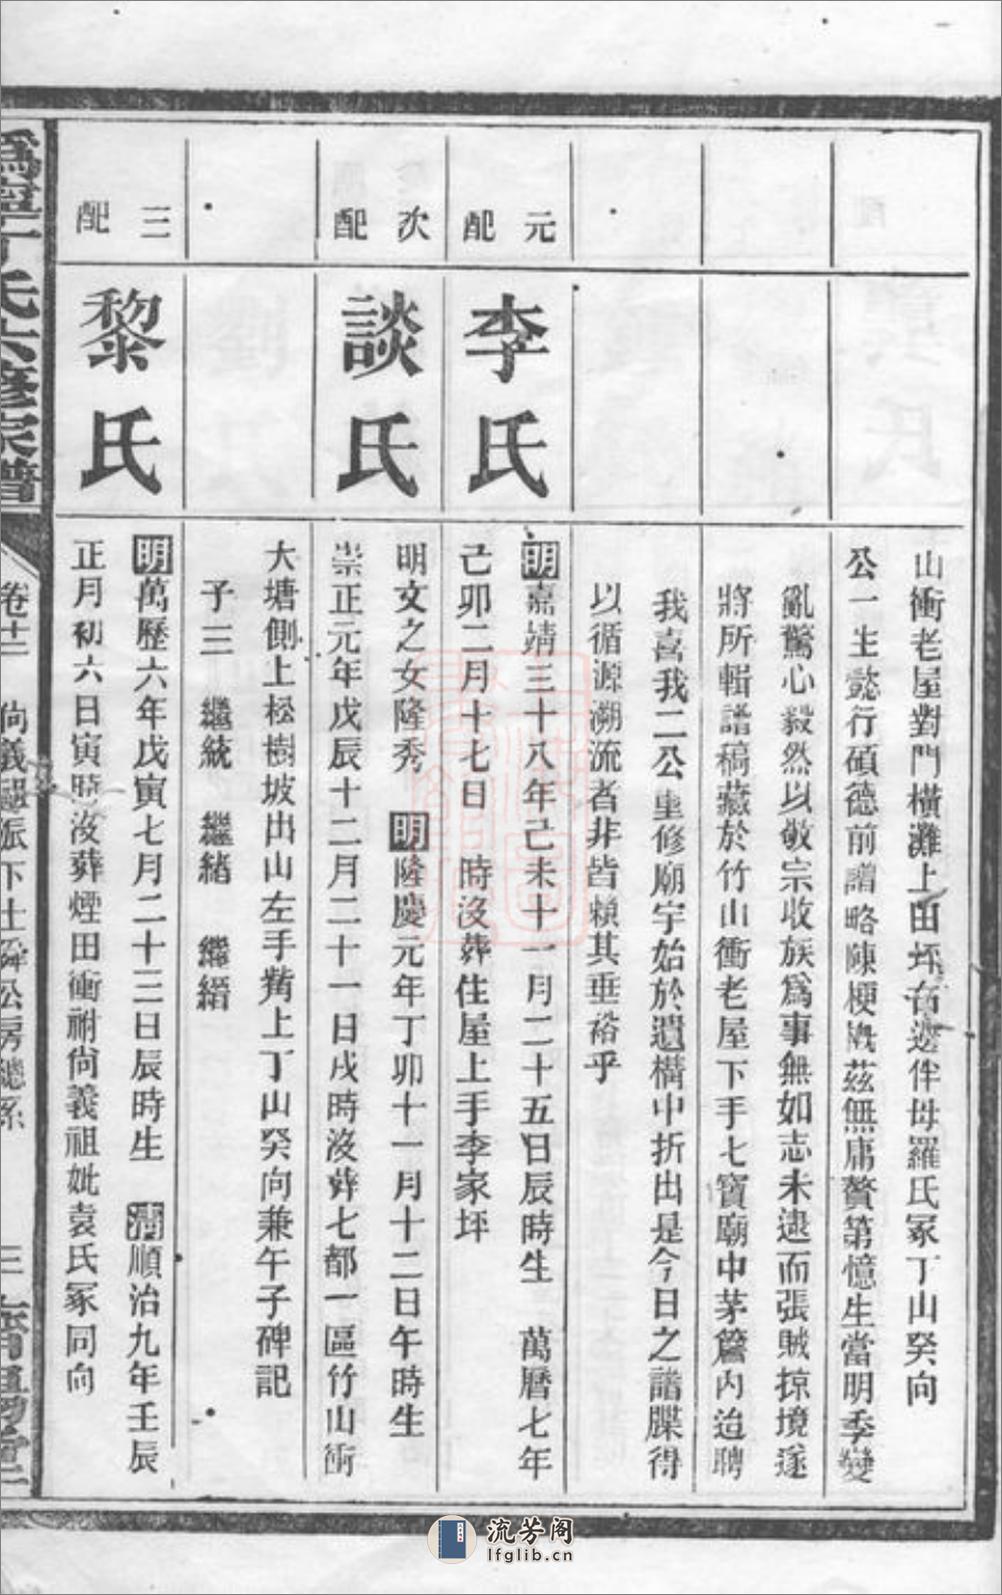 山衝老屋對門橫灘上田坪右邊伴母羅氏冢丁山癸向
公一生懿行碩德前譜略陳梗槪茲無庸贅第憶生當明季變
亂驚心毅然以敬宗收族爲事無如志未逮而張賊掠境遂
將所輯譜稿藏於竹山衝老屋下手七寶廟中茅簷內迨聘
我喜我二公重修廟宇始於遺構中折出是今日之譜牒得
以循源溯流者非皆賴其垂裕乎
元配
李氏
明嘉靖三十八年己未十一月二十五日辰時生 萬曆七年
己卯二月十七日 時沒葬住屋上手李家坪
次配
談氏
明文之女隆秀 明隆慶元年丁卯十一月十二日午時生
崇正元年戊辰十二月二十一日戌時沒葬七都一區竹山衝
大塘側上松樹坡出山左手觜上丁山癸向兼午子碑記
子三 繼統 繼緒 繼縉
三配
黎氏
明萬歷六年戊寅七月二十三日辰時生 淸順治九年壬辰
正月初六日寅時沒葬煙田衝祔尙義祖妣袁氏冢同向
爲寧丁氏六修宗譜
卷十二 尙義祖派下士舜公房總系
三
流芳阁
lfglib.cn